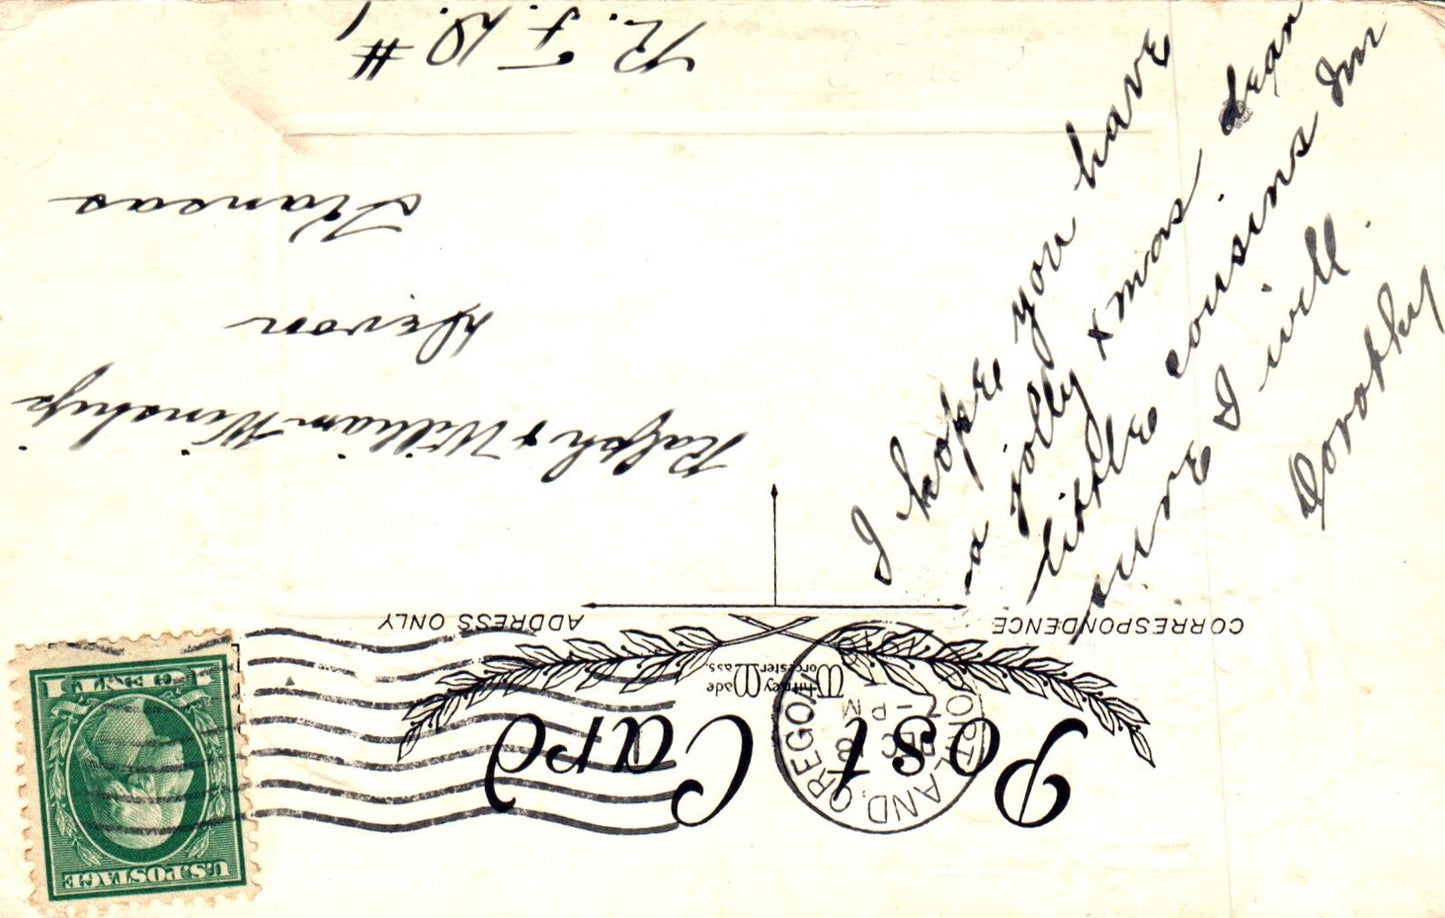 Post Card
Whitney Made
Worcester Mass.
CORRESPONDENCE
ADDRESS ONLY
PORTLAND, OREGON
DEC
7-PM
U.S. POSTAGE
1 CENT 1
I hope you have
a jolly xmas dear
little cousins Im
sure I will.
Dorothy
Ralph & William Winship
Devon
Kansas
R. F. D. #1